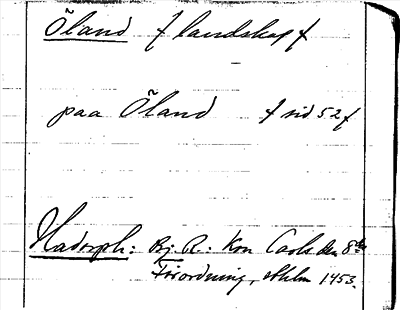 Öland f landskap f
paa Öland f sid 52 f
Hadorph: Bj. R.: Kon Carls den 8de
Förordning, Sthlm 1453.